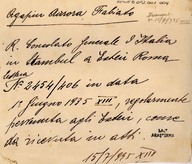 Agapiu Aurora Fabiato
R. Consolato Generale d'Italia
in Stambul a Esteri Roma
Lettera
N° 2454/406 in data
1° giugno 1935 XIII, regolarmente
pervenuta agli Esteri, come
da ricevuta in atti.
15/7/935 XIII